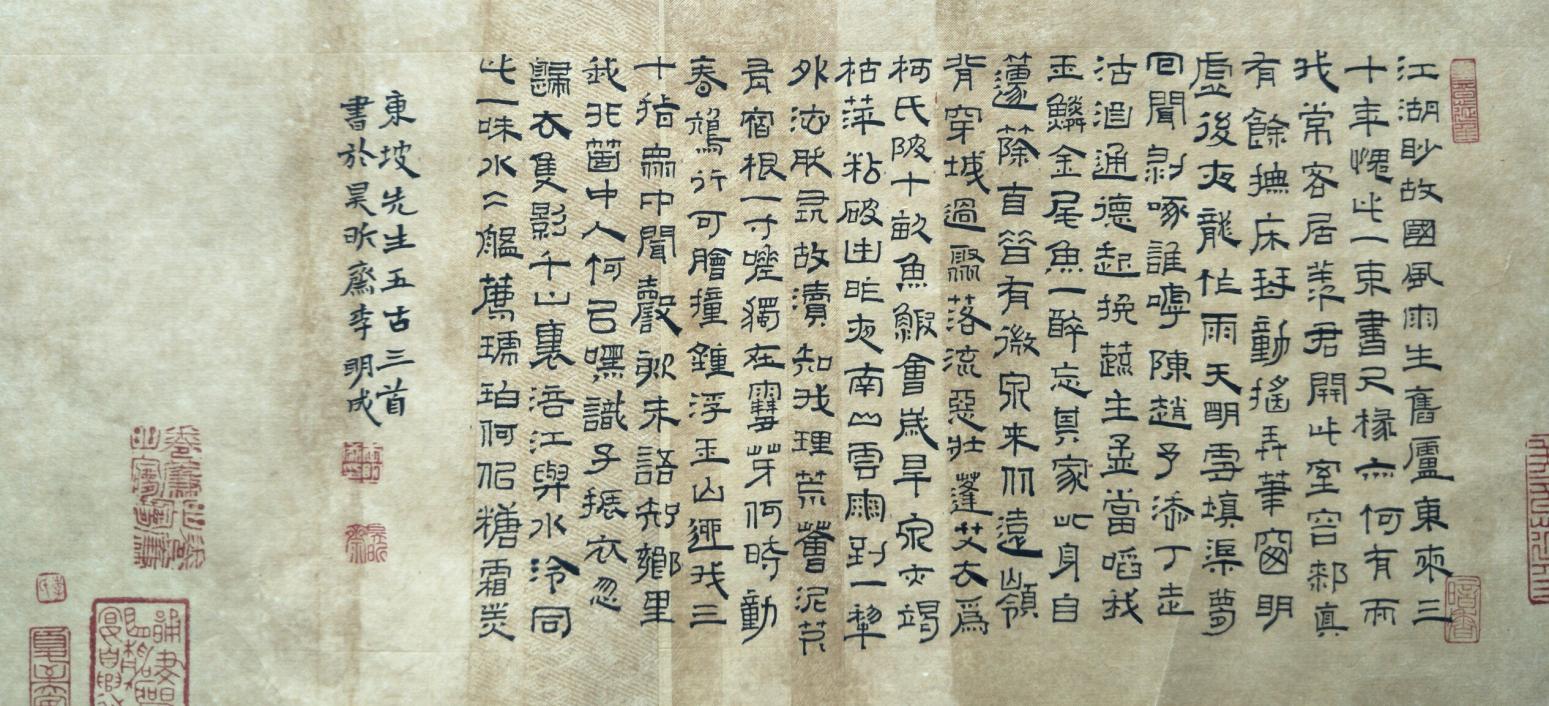 江湖眇故國風雨生舊廬東來三
十年愧此一束書尺椽亦何有而
我常客居羨君開此室容郄真
有餘撫床琴動搖弄筆窗明
虛後夜龍作雨天明雪填渠夢
回聞剝啄誰嘑陳趙予添丁走
沽酒通德起挽蔬主孟當啗我
玉鱗金尾魚一醉忘其家此身自
蘧蒢自昔有微泉來從遠嶺
背穿城過聚落流惡壯蓬艾去爲
柯氏陂十畝魚蝦會歲旱泉亦竭
枯萍粘破凷昨夜南山雲雨到一犂
外泫然尋故瀆知我理荒薈泥芹
有宿根一寸嗟獨在雪芽何時動
春鳩行可膾撞鐘浮玉山迎我三
十指眾中聞謦欬未語知鄉里
我非箇中人何以嘿識子振衣忽
歸去隻影千山裏涪江與水冷同
此一味水二艦薦琥珀何似糖霜美
東坡先生五古三首
書於昊昕齋李明成